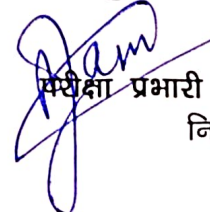 परीक्षा प्रभारी
नि